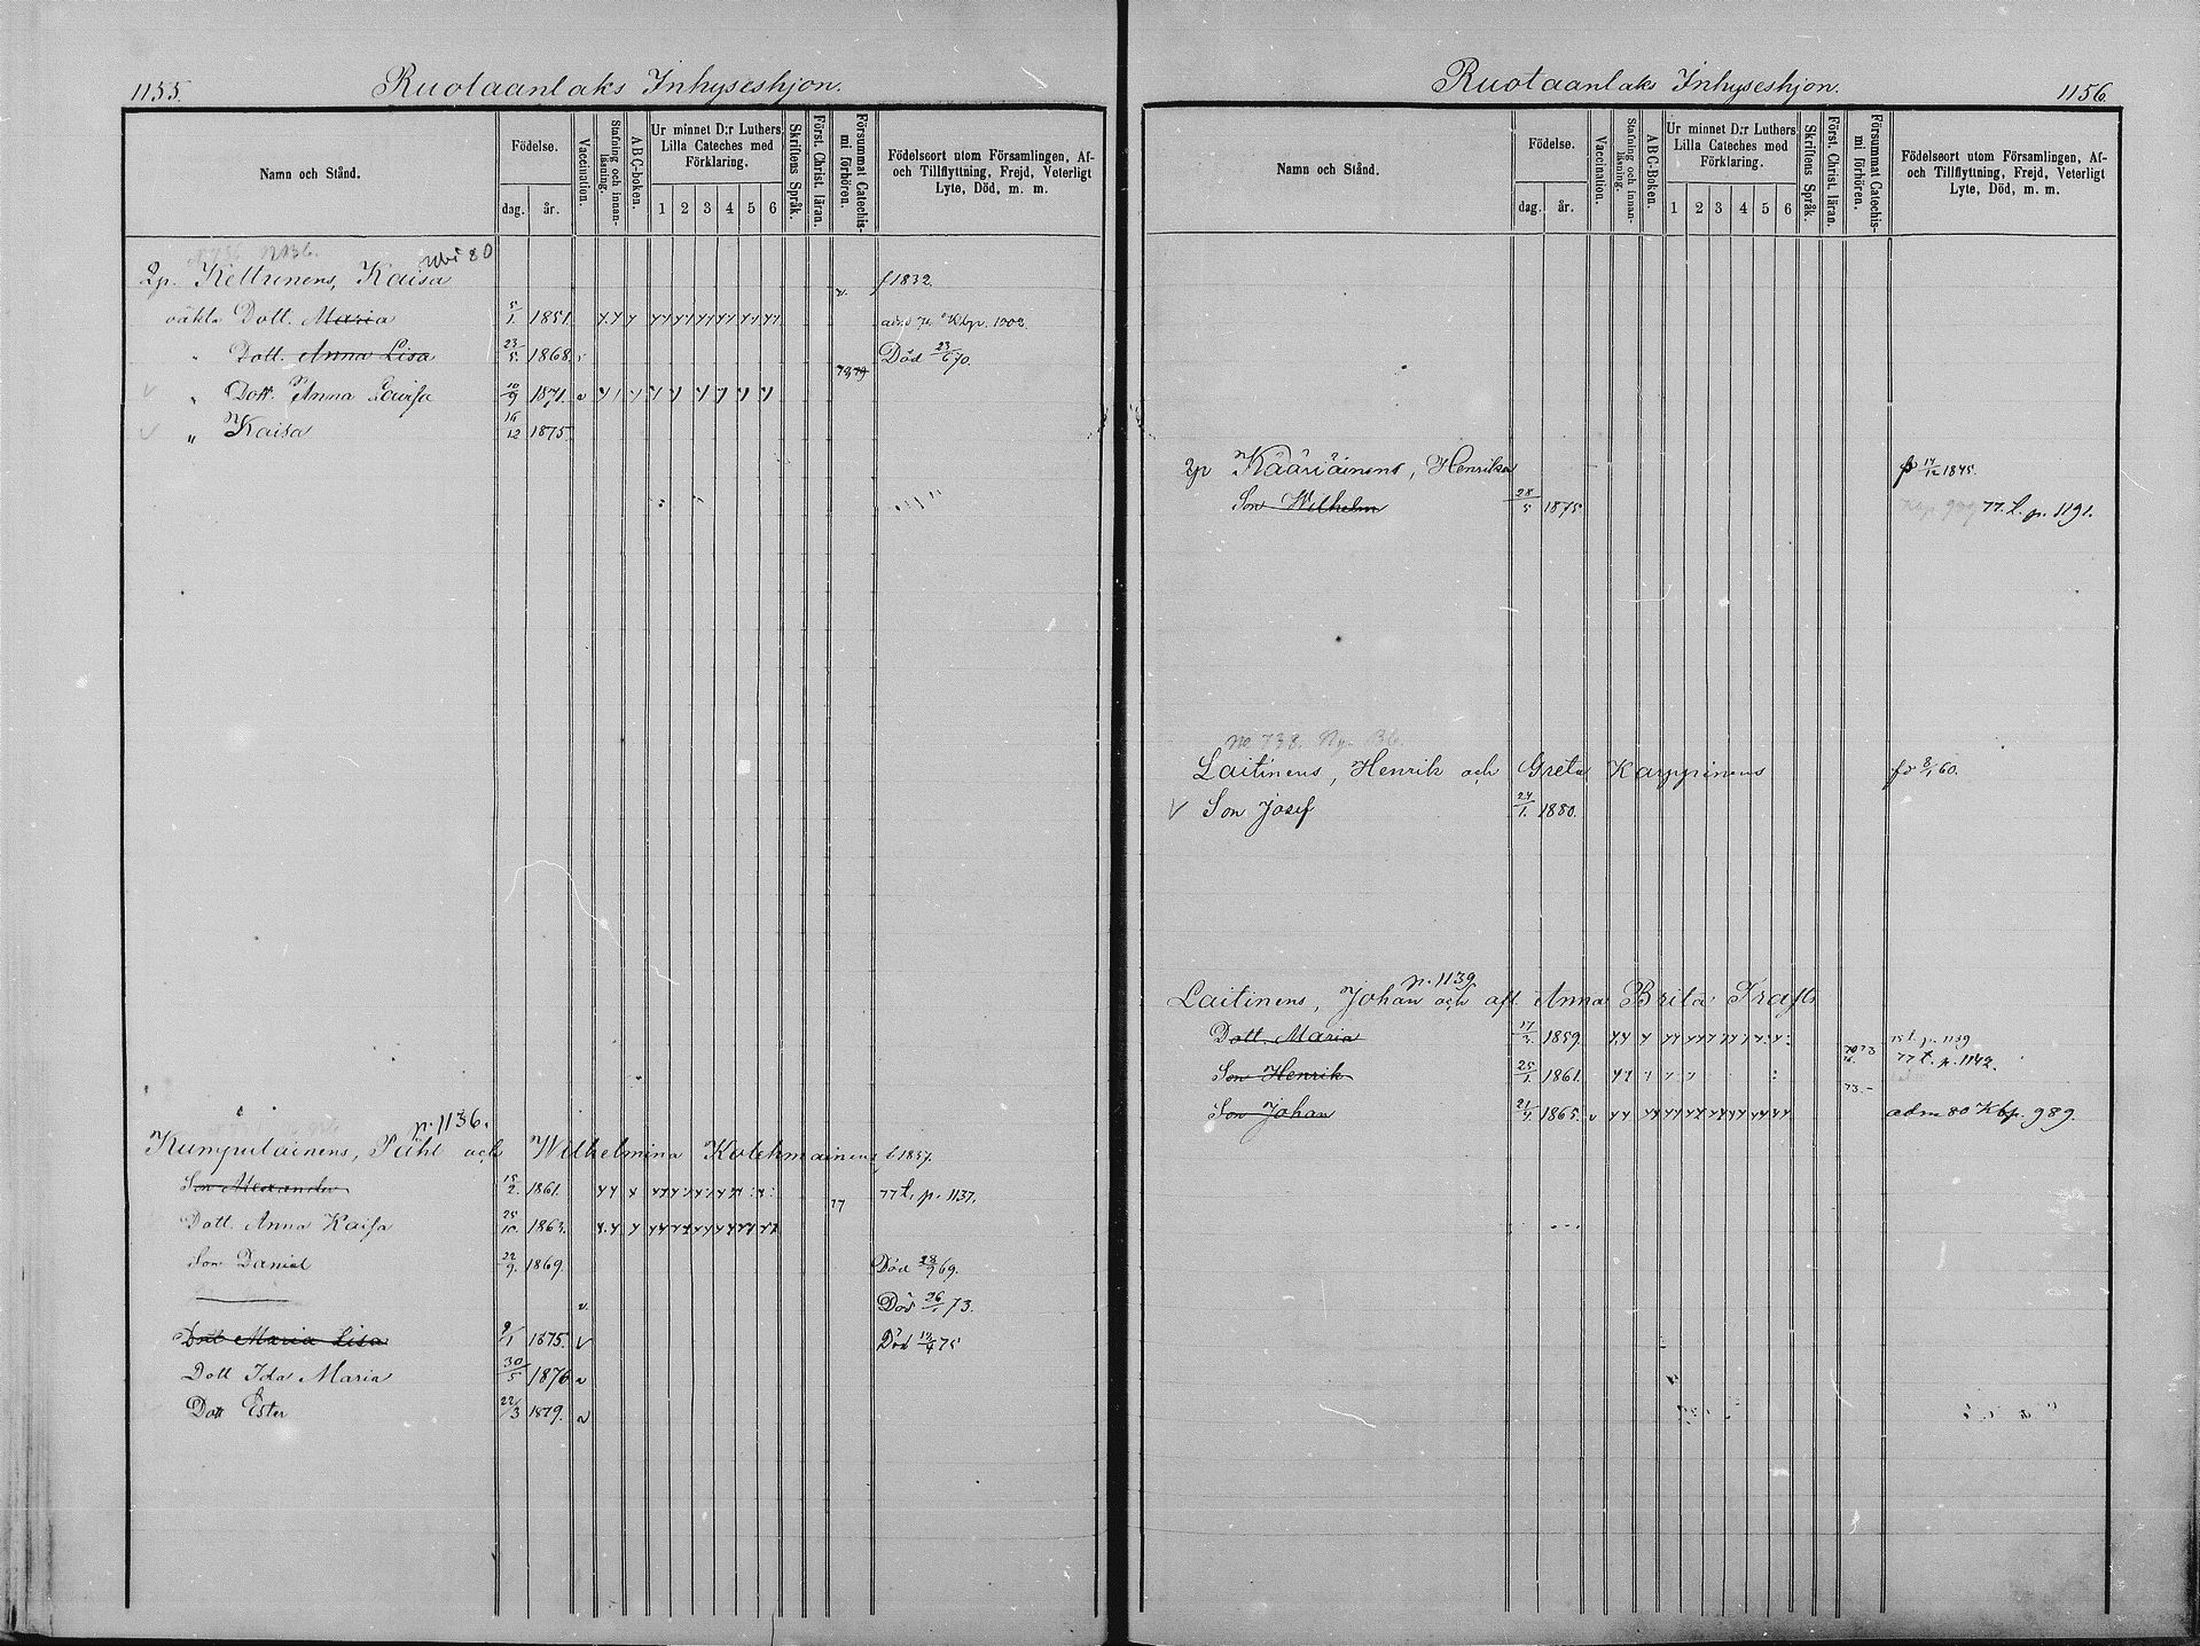 1155.
Ruotaanlaks Inhyseshjon.
Namn och Stånd.
Födelse.
dag. år.
Vaccination.
Stafning och innanläsning.
ABC-boken.
Ur minnet D:r Luthers Lilla Cateches med Förklaring.
1 2 3 4 5 6
Skriftens Språk.
Först. Christ. läran.
Försummat Catechismi förhören.
Födelseort utom Församlingen, Af- och Tillflyttning, Frejd, Veterligt Lyte, Död, m. m.
Kettunens, Kaisa f 1832.
oäkta Dott. Maria 5/1 1851. Kbp. 1002.
" Dott. Anna Lisa 23/5 1868. Död 23/6 70.
" Dott. Anna Lovisa 10/9 1871.
" Kaisa 16/12 1875.
p. 1136.
Kumpulainens, Påhl och Wilhelmina Kolehmainens f. 1837.
Son Alexander 15/2. 1861. 77 77 t. p. 1137.
Dott. Anna Kaisa 25/10. 1863.
Son Daniel 22/9. 1869. Död 28/9 69.
Död 26/1 73.
Dott Maria Lisa 9/1 1875. Död 13/4 75
Dott Ida Maria 30/5 1876
Dott Ester 22/3 1879.
Ruotaanlaks Inhyseshjon.
1156.
Namn och Stånd.
Födelse.
dag. år.
Vaccination.
Stafning och innanläsning.
ABC-Boken.
Ur minnet D:r Luthers Lilla Cateches med Förklaring.
1 2 3 4 5 6
Skriftens Språk.
Först. Christ. läran.
Försummat Catechismi förhören.
Födelseort utom Församlingen, Af- och Tillflyttning, Frejd, Veterligt Lyte, Död, m. m.
Kääriäinens, Henrika 14/12 1845.
Son Wilhelm 28/5 1875 77. t. p. 1191.
Laitinens, Henrik och Greta Karppinens 8/1 60.
Son Josef 24/1. 1880.
p. 1139
Laitinens, Johan och aft Anna Brita Trast
Dott. Maria 17/2. 1859. 75 t. p. 1139
Son Henrik 25/1. 1861. 77 t. p. 1142.
Son Johan 21/4. 1865. adm 80 Kbp. 989.